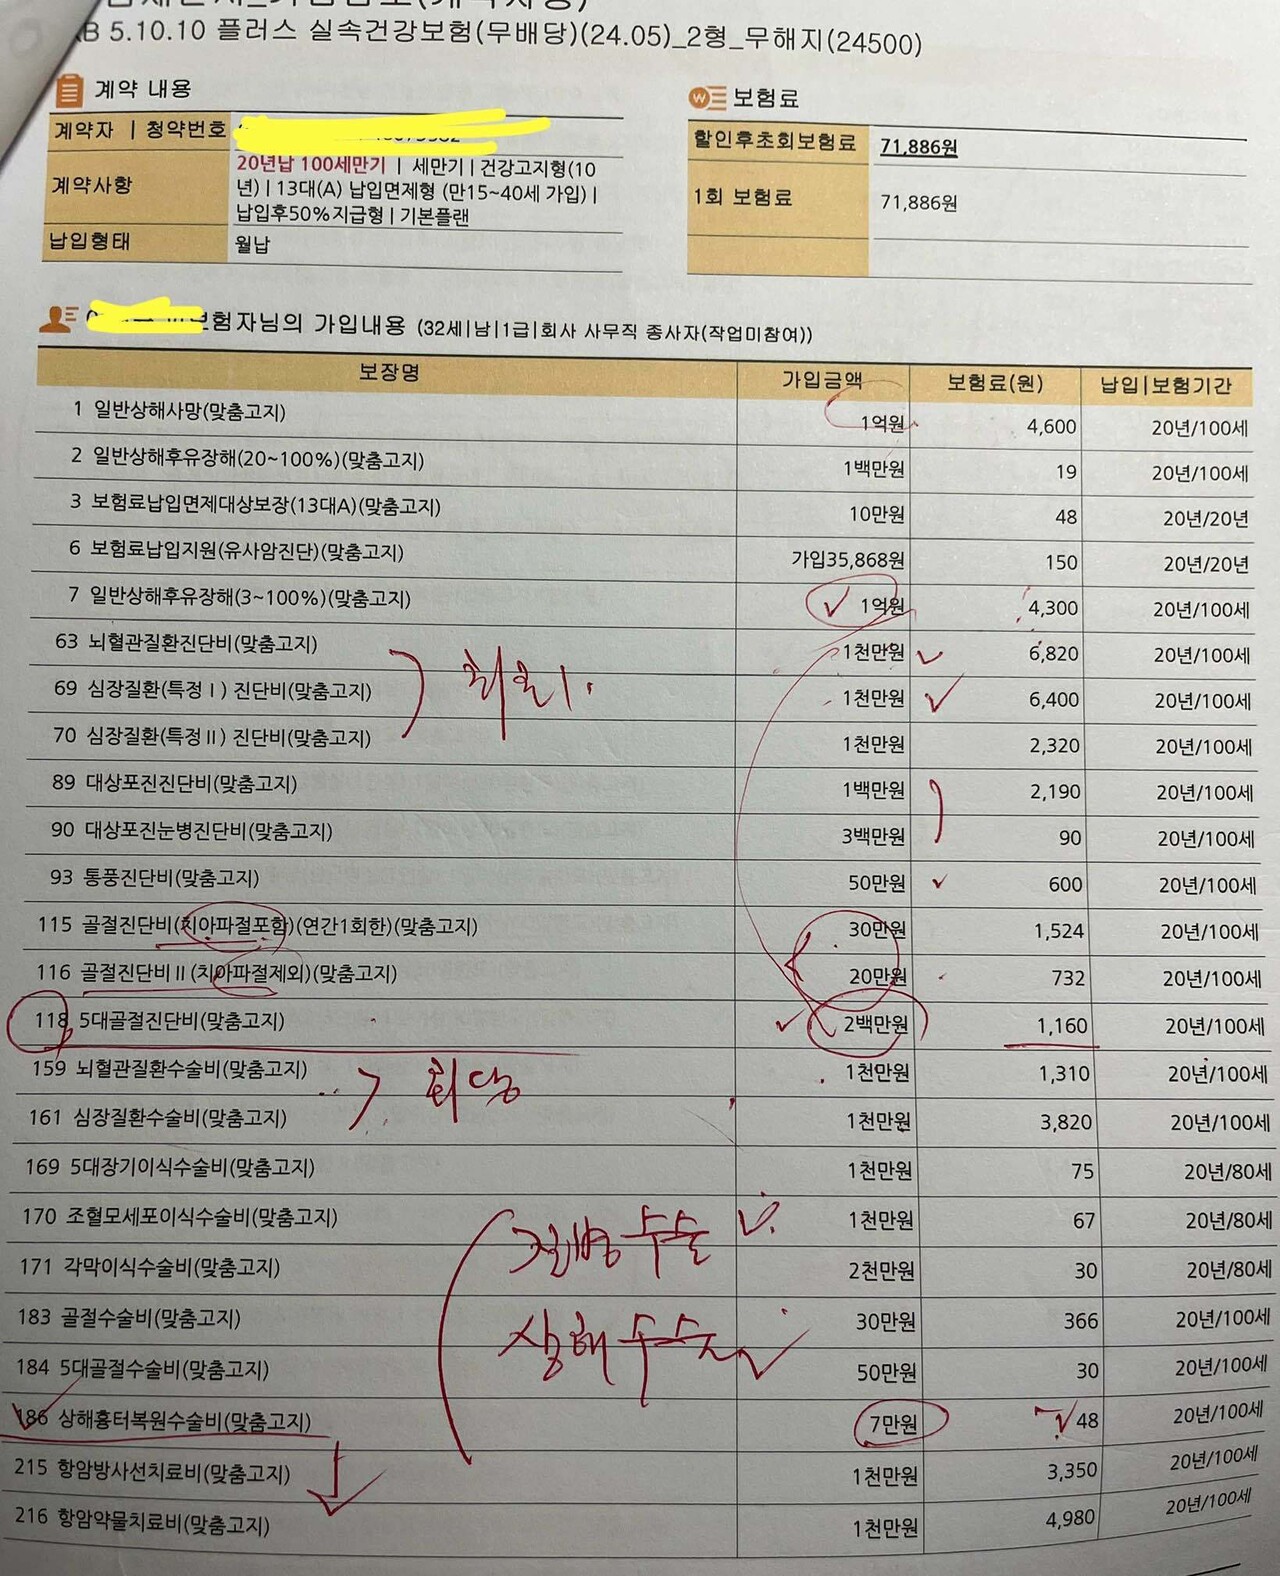 B 5.10.10 플러스 실속건강보험(무배당)(24.05)_2형_무해지(24500)
계약 내용
계약자 | 청약번호
계약사항 20년납 100세만기 | 세만기 | 건강고지형(10
년) | 13대(A) 납입면제형 (만15~40세 가입) |
납입후50%지급형 | 기본플랜
납입형태 월납
보험료
할인후초회보험료 71,886원
1회 보험료 71,886원
보험자님의 가입내용 (32세|남|1급|회사 사무직 종사자(작업미참여))
보장명 가입금액 보험료(원) 납입|보험기간
1 일반상해사망(맞춤고지) 1억원 4,600 20년/100세
2 일반상해후유장해(20~100%)(맞춤고지) 1백만원 19 20년/100세
3 보험료납입면제대상보장(13대A)(맞춤고지) 10만원 48 20년/20년
6 보험료납입지원(유사암진단)(맞춤고지) 가입35,868원 150 20년/20년
7 일반상해후유장해(3~100%)(맞춤고지) 1억원 4,300 20년/100세
63 뇌혈관질환진단비(맞춤고지) 1천만원 6,820 20년/100세
69 심장질환(특정Ⅰ) 진단비(맞춤고지) 1천만원 6,400 20년/100세
70 심장질환(특정Ⅱ) 진단비(맞춤고지) 1천만원 2,320 20년/100세
89 대상포진진단비(맞춤고지) 1백만원 2,190 20년/100세
90 대상포진눈병진단비(맞춤고지) 3백만원 90 20년/100세
93 통풍진단비(맞춤고지) 50만원 600 20년/100세
115 골절진단비(치아파절포함)(연간1회한)(맞춤고지) 30만원 1,524 20년/100세
116 골절진단비Ⅱ(치아파절제외)(맞춤고지) 20만원 732 20년/100세
118 5대골절진단비(맞춤고지) 2백만원 1,160 20년/100세
159 뇌혈관질환수술비(맞춤고지) 1천만원 1,310 20년/100세
회당
161 심장질환수술비(맞춤고지) 1천만원 3,820 20년/100세
169 5대장기이식수술비(맞춤고지) 1천만원 75 20년/80세
170 조혈모세포이식수술비(맞춤고지) 1천만원 67 20년/80세
질병수술
171 각막이식수술비(맞춤고지) 2천만원 30 20년/80세
183 골절수술비(맞춤고지) 30만원 366 20년/100세
상해수술
184 5대골절수술비(맞춤고지) 50만원 30 20년/100세
186 상해흉터복원수술비(맞춤고지) 7만원 48 20년/100세
215 항암방사선치료비(맞춤고지) 1천만원 3,350 20년/100세
216 항암약물치료비(맞춤고지) 1천만원 4,980 20년/100세